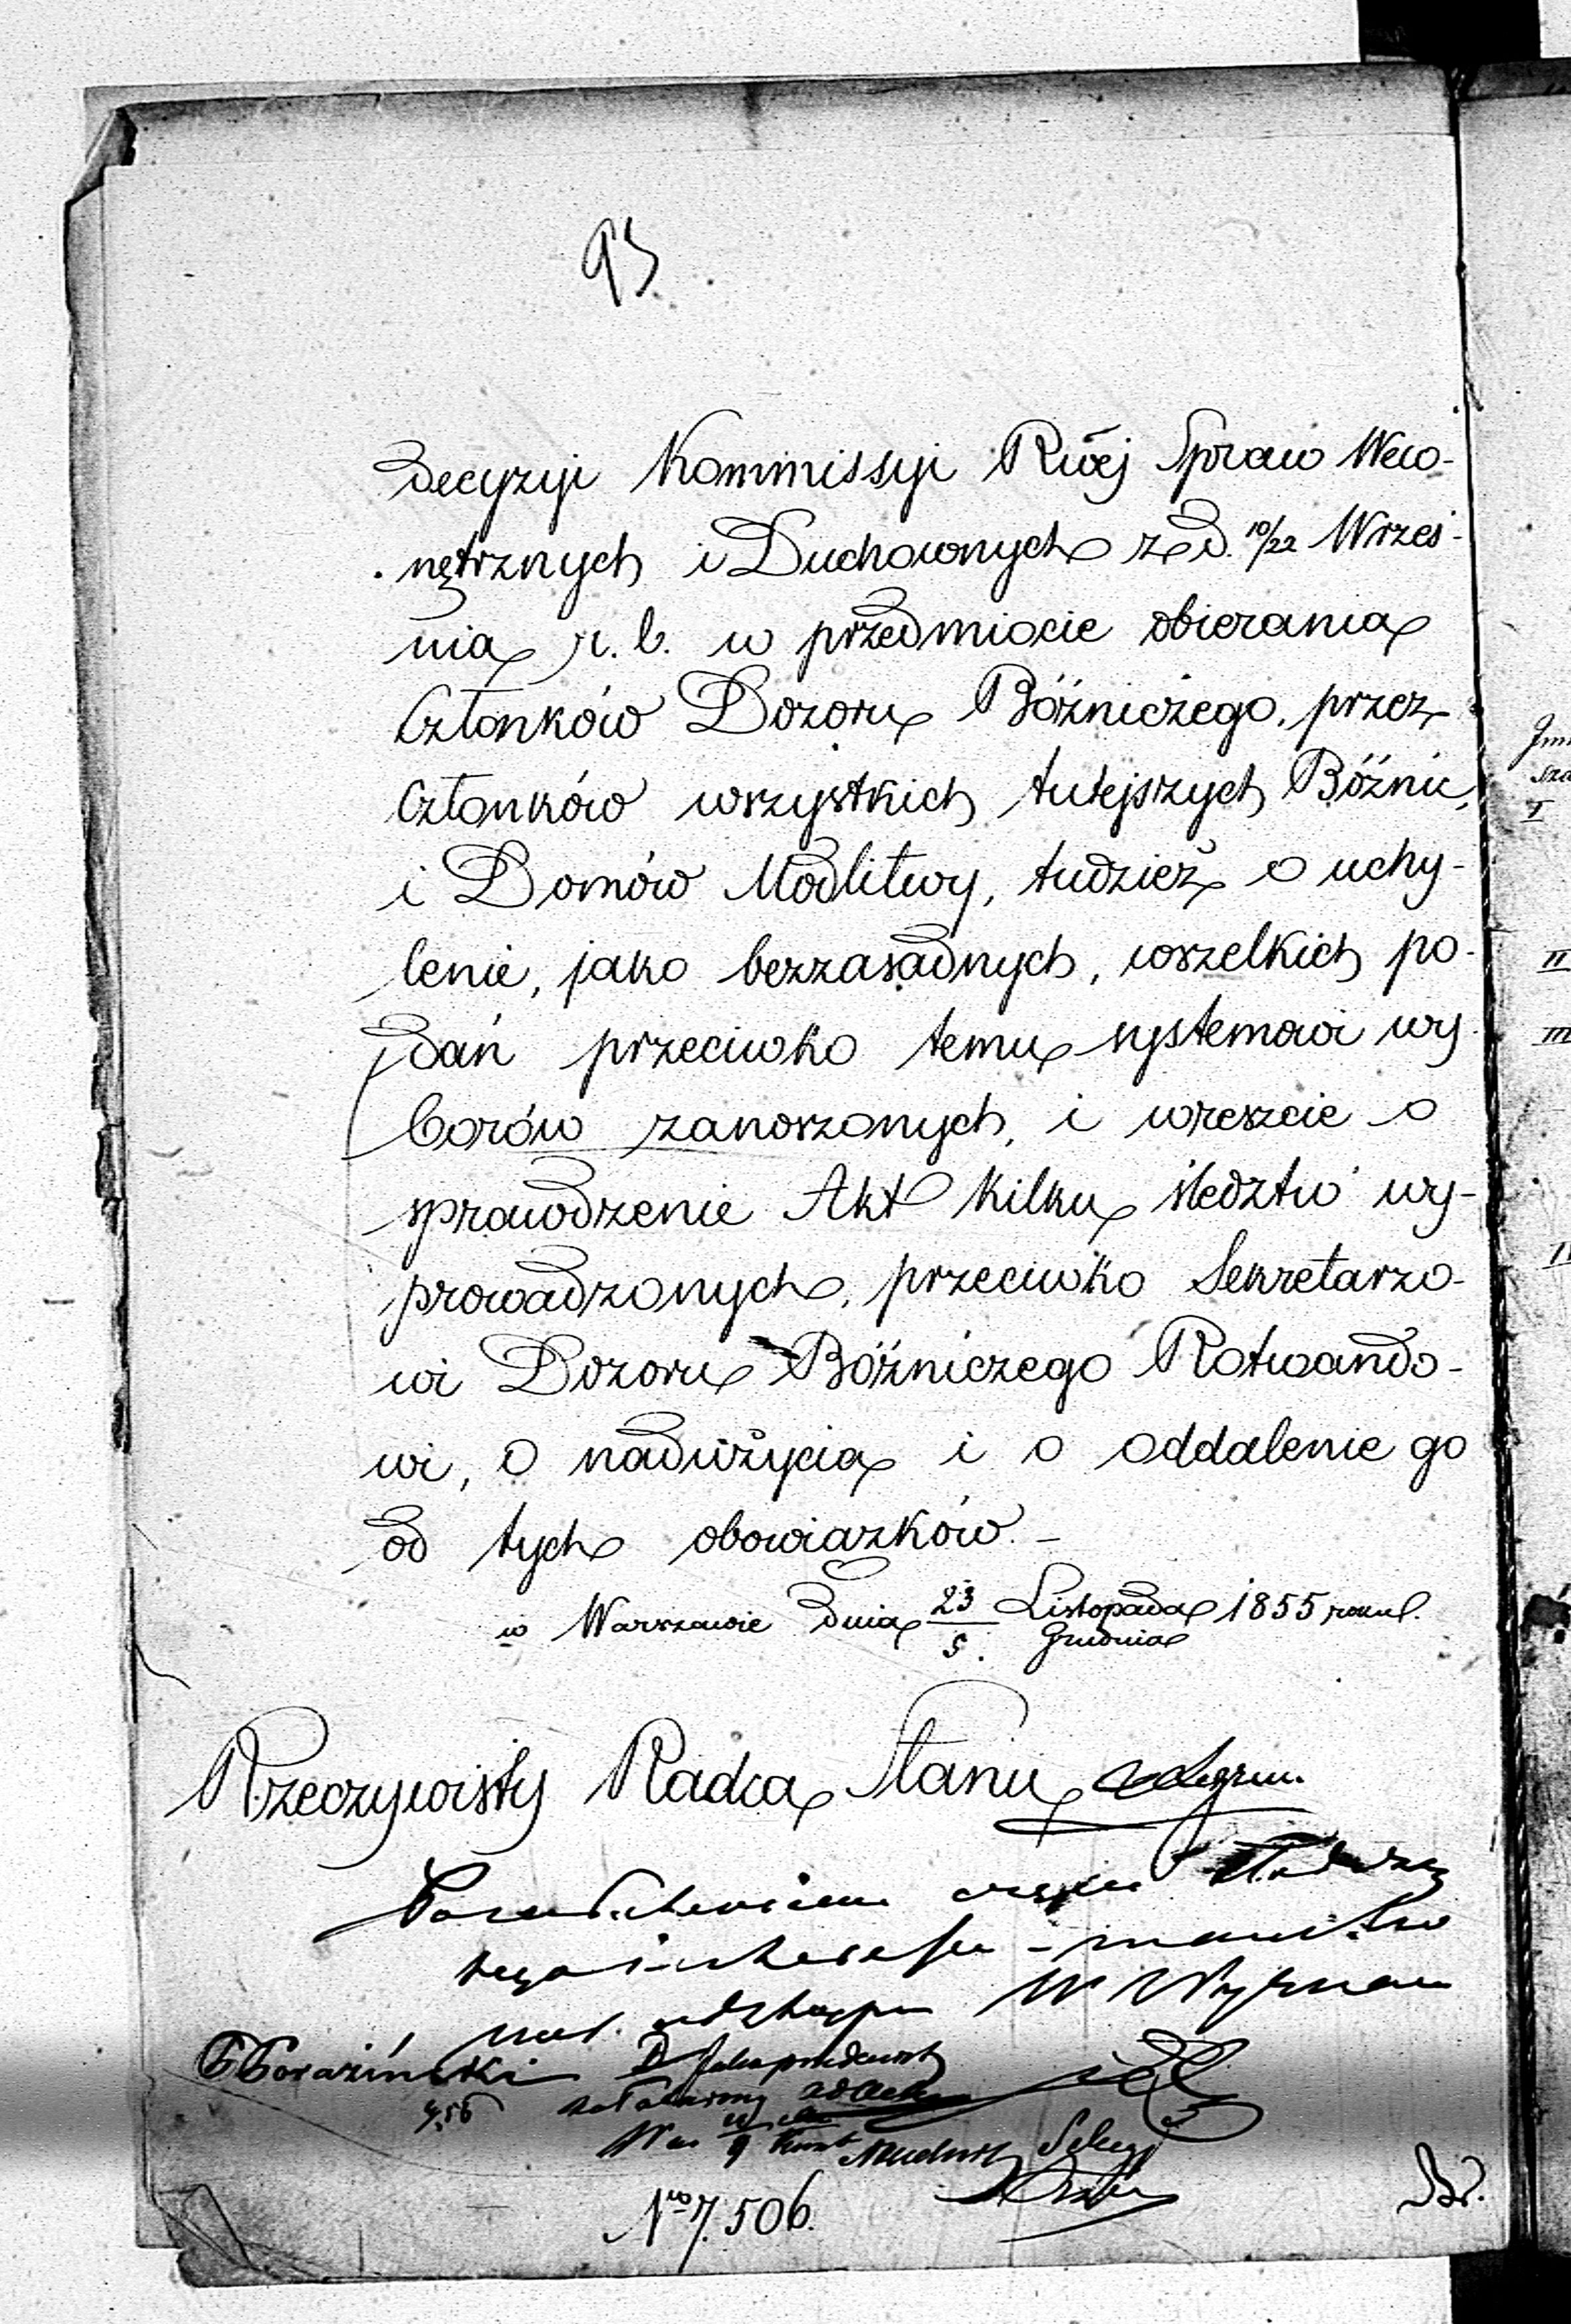 93.
decyzyi Kommissyi Rwėj Spraw Wew-
nętrznych i Duchownych z d. 10/22 Wrześ-
nia r. b. w przedmiocie obierania
Członków Dozoru Bóźniczego, przez
Członków wszystkich tutejszych Bóźnic,
i Domów Modlitwy, tudzież o uchy-
lenie, jako bezzasadnych, wszelkich po-
dań przeciwko temu systemowi wy-
borów zanoszonych, i wreszcie o
sprawdzenie Akt kilku śledztw wy-
prowadzonych, przeciwko Sekretarzo-
wi Dozoru Bóźniczego Rotwando-
wi, o nadużycia i o oddalenie go
od tych obowiązków.-
w Warszawie dnia 23/5. Listopada/Grudnia 1855 roku.
Rzeczywisty Radca Stanu
tego interesu
W
Nro 7,506.